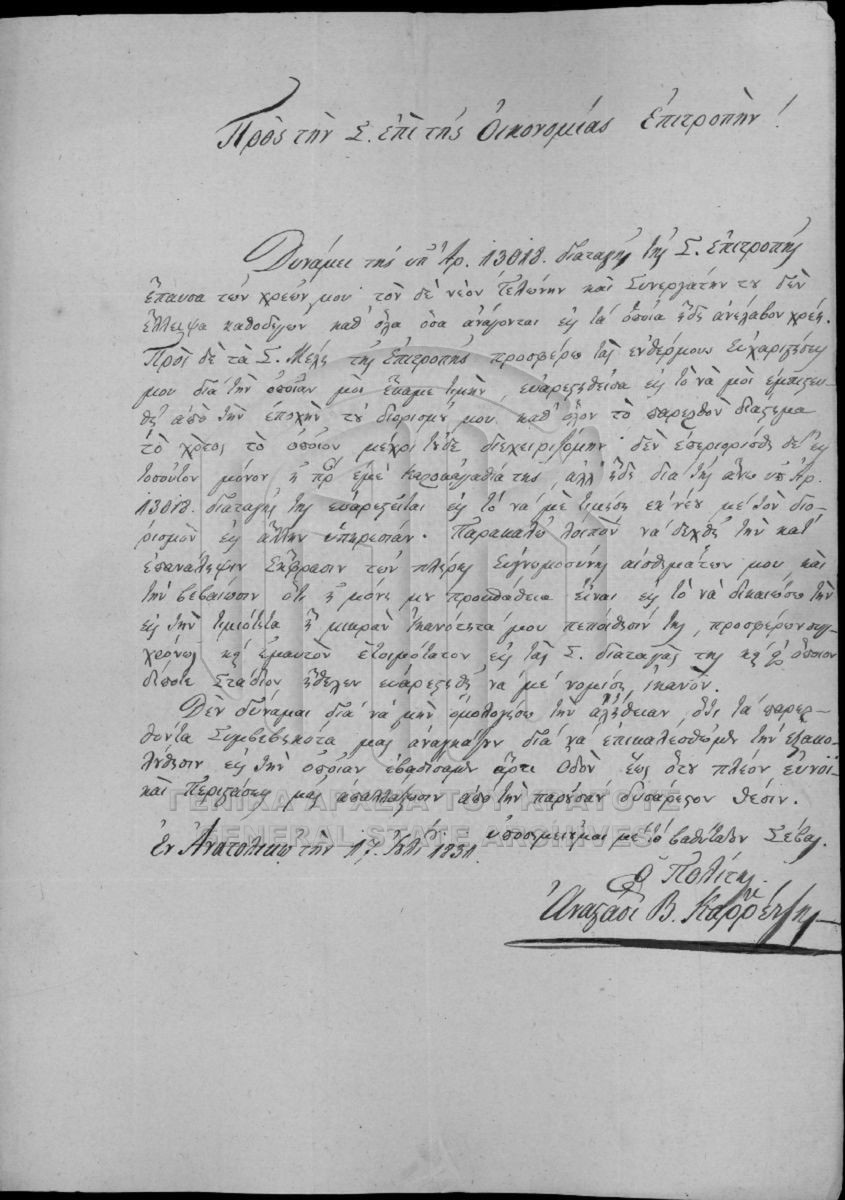 Πρὸς τὴν Σ. ἐπὶ τῆς Οἰκονομίας Ἐπιτροπὴν!
Δυνάμει τῆς ὑπ' Ἀρ. 13018. διαταγῆς τῆς Σ. Ἐπιτροπῆς
ἔπαυσα τῶν χρεῶν μου τὸν δὲ νέον Τελώνην καὶ Συνεργάτην του δὲν
ἔλλειψα καθοδηγῶν καθ' ὅλα ὅσα ἀνάγονται εἰς τὰ ὁποῖα ἤδη ἀνέλαβον χρέη.
Πρὸς δὲ τὰ Σ. Μέλη τῆς Ἐπιτροπῆς προσφέρω τὰς ἐνθέρμους εὐχαριστήσεις
μου διὰ τὴν ὁποίαν μοὶ ἔκαμε τιμὴν, εὐαρεστηθεῖσα εἰς τὸ νὰ μοὶ ἐμπιστευ-
θῇ ἀπὸ τὴν ἐποχὴν τοῦ διορισμοῦ μου καθ' ὅλον τὸ παρελθὸν διάστημα
τὸ χρέος τὸ ὁποῖον μέχρι τοῦδε διεχειριζόμην· δὲν ἐπεριορίσθη δὲ εἰς
τοσοῦτον μόνον ἡ πρὸς ἐμὲ καλοκαγαθία της, ἀλλ' ἤδη διὰ τῆς ἄνω ὑπ' Ἀρ.
13018. διαταγῆς της εὐαρεστεῖται εἰς τὸ νὰ μὲ τιμήσῃ ἐκ νέου μὲ τὸν διο-
ρισμὸν εἰς ἄλλην ὑπηρεσίαν. Παρακαλῶ λοιπὸν νὰ δεχθῇ τὴν κατ'
ἐπανάληψιν ἔκφρασιν τῶν πλήρης εὐγνωμοσύνης αἰσθημάτων μου, καὶ
τὴν βεβαίωσιν ὅτι ἡ μόνη μου προσπάθεια εἶναι εἰς τὸ νὰ δικαιώσω τὴν
εἰς τὴν τιμιότητα ἢ μικρὰν ἱκανότητά μου πεποίθησίν της, προσφέρων συγ-
χρόνως κ' ἐμαυτὸν ἑτοιμότατον εἰς τὰς Σ. διαταγάς της κ' ἐφ' ὁποῖον
δήποτε Στάδιον ἤθελεν εὐαρεστηθῇ νὰ μὲ νομίσῃ ἱκανόν.
Δὲν δύναμαι διὰ νὰ μὴν ὁμολογήσω τὴν ἀλήθειαν, ὅτι τὰ παρελ-
θόντα Συμβεβηκότα μᾶς ἀναγκάζουν διὰ νὰ ἐπικαλεσθῶμεν τὴν ἐξακο-
λούθησιν εἰς τὴν ὁποίαν ἐβαδίσαμεν ἄρτι Ὁδὸν ἕως ὅτου πλέον εὐνοϊ-
καὶ Περιστάσεις μᾶς ἀπαλλάξωσιν ἀπὸ τὴν παροῦσαν δυσάρεστον θέσιν.
ὑποσημειοῦμαι μὲ τὸ βαθύτατον Σέβας.
Ἐν Ἀνατολικῷ τὴν 17. 1831.
ὁ Πολίτης
Ἀναστάσι Β.
ΓΕΝΙΚΑ ΑΡΧΕΙΑ ΤΟΥ ΚΡΑΤΟΥΣ
GENERAL STATE ARCHIVES